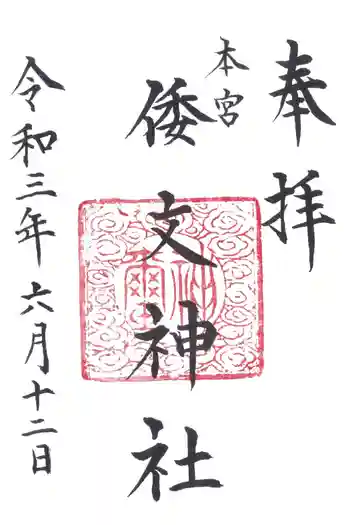 奉拝
本宮
倭文神社
令和三年六月十二日